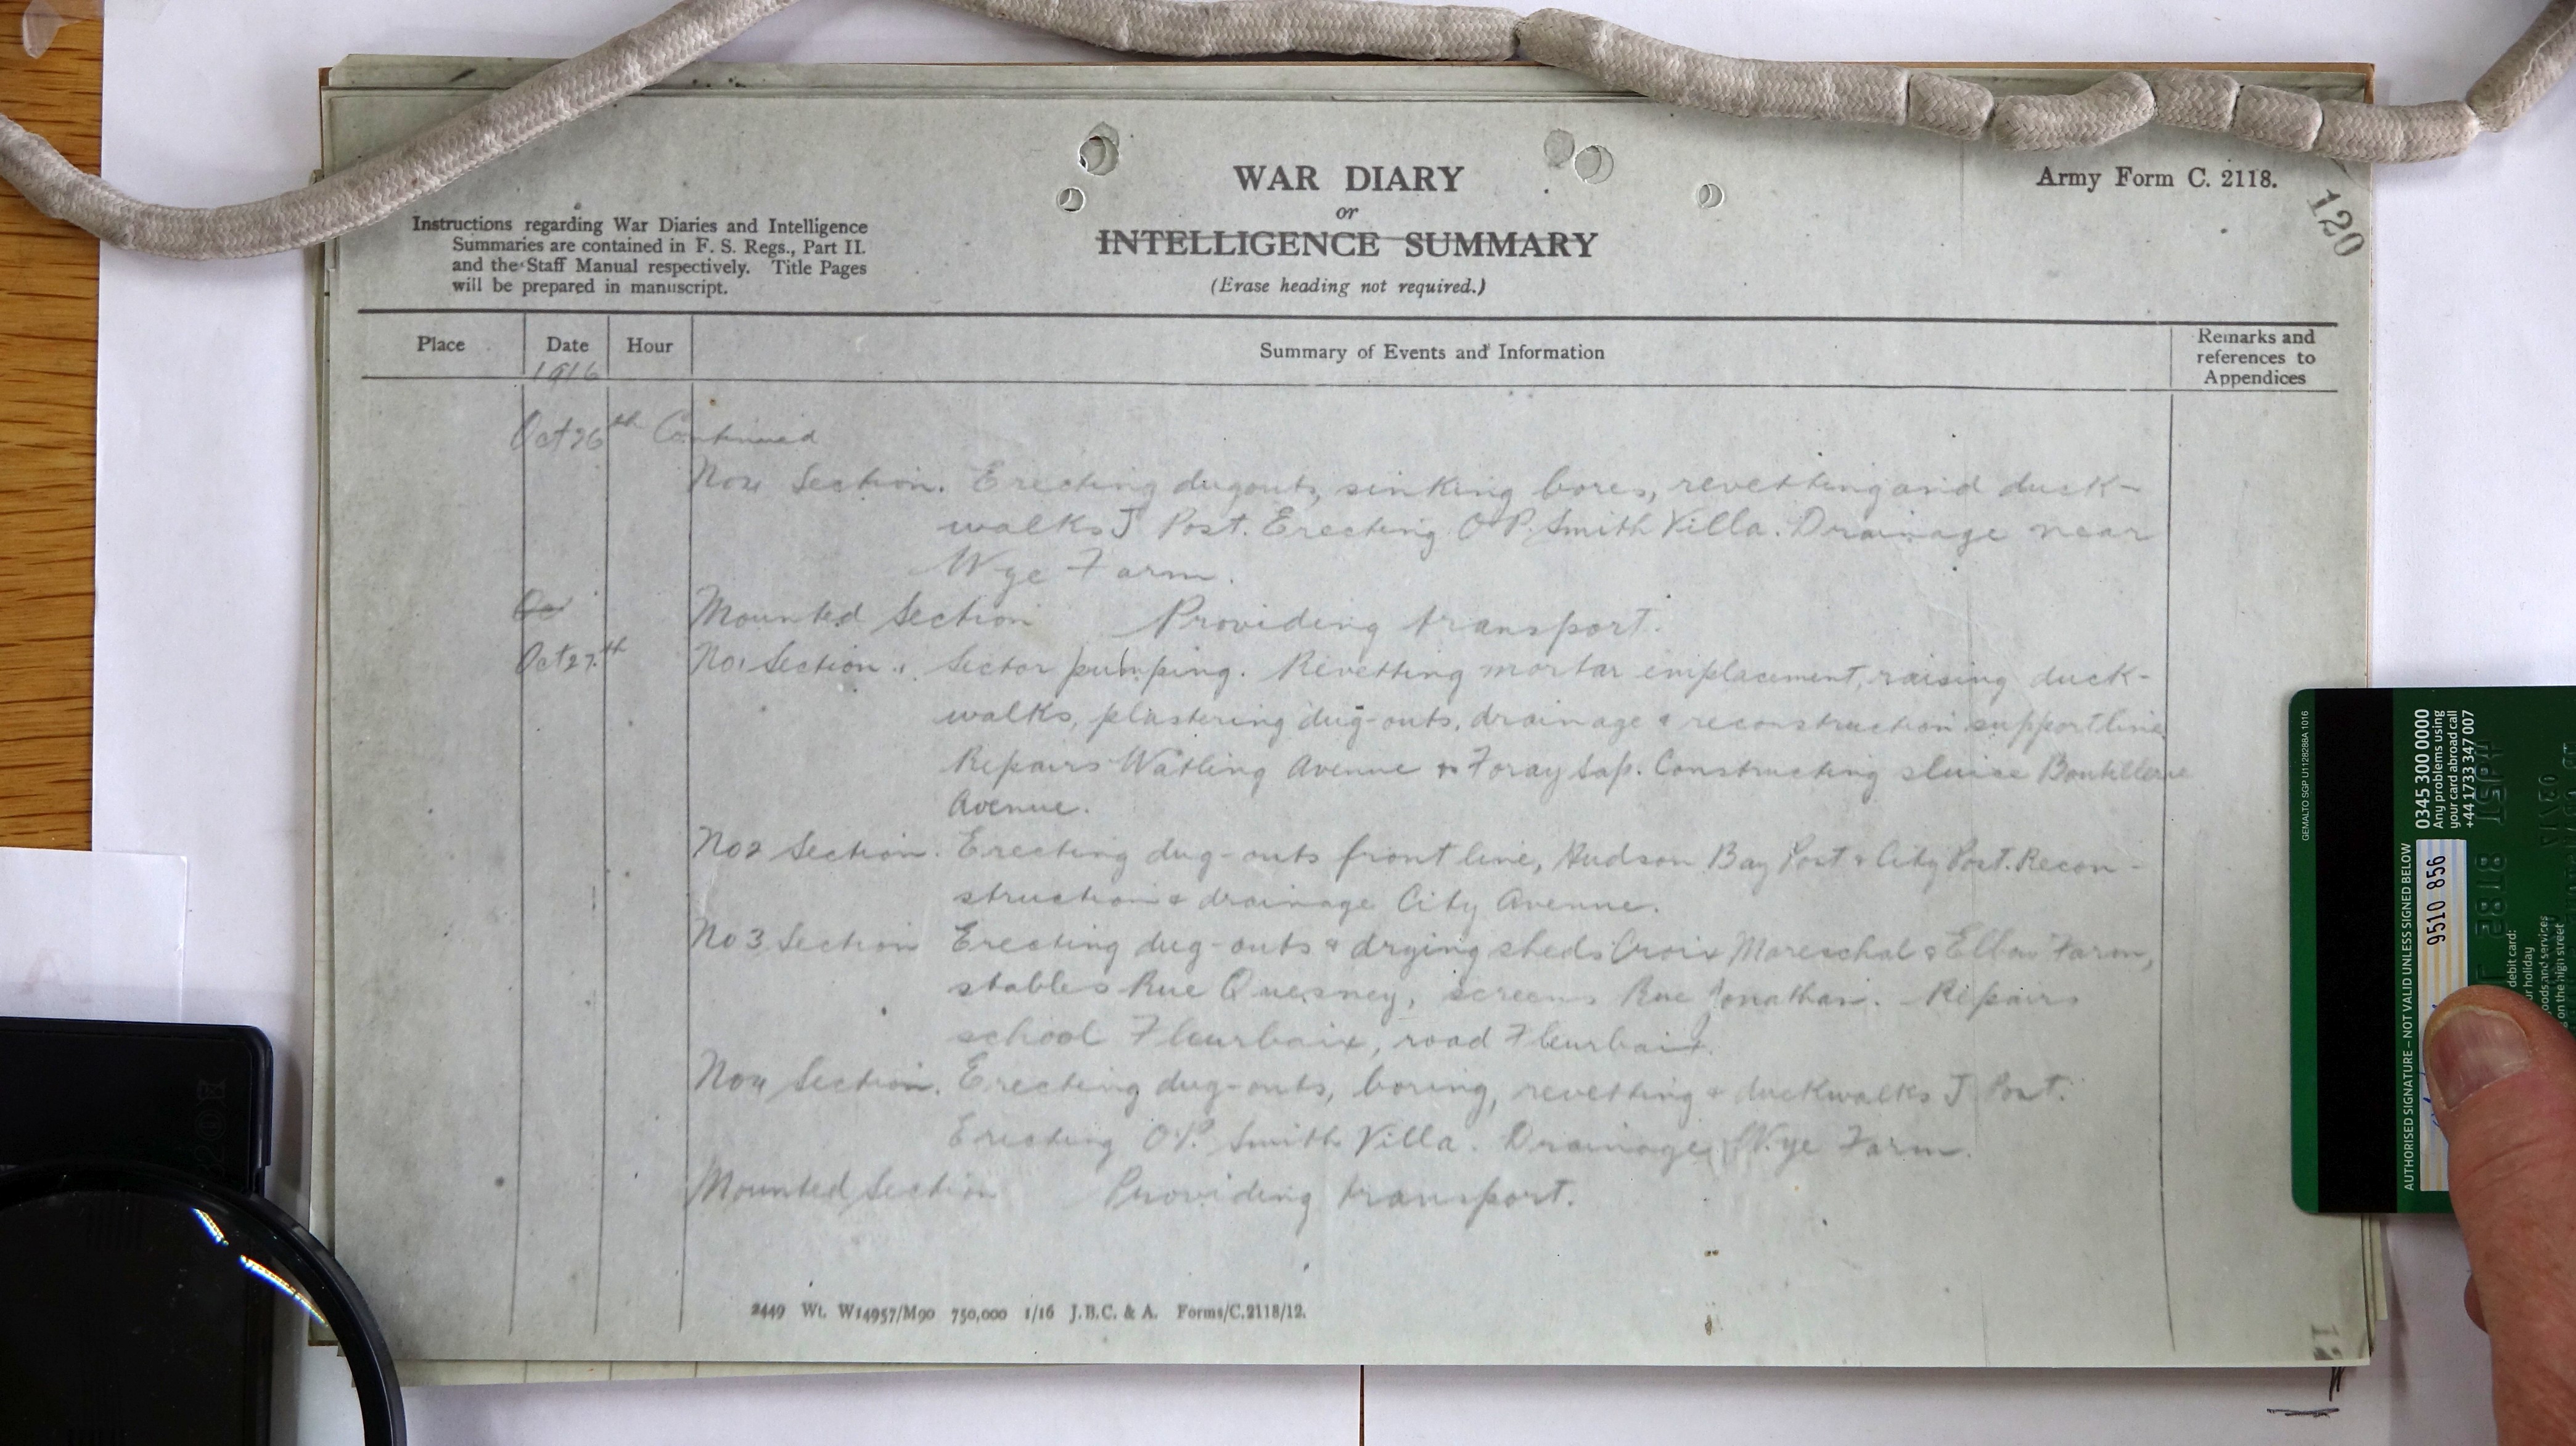 WAR DIARY
or
INTELLIGENCE SUMMARY
(Erase heading not required.)
Army Form C. 2118.
120
Instructions regarding War Diaries and Intelligence
Summaries are contained in F. S. Regs., Part II.
and the Staff Manual respectively. Title Pages
will be prepared in manuscript.
Place
Date
1916
Hour
Summary of Events and Information
Remarks and
references to
Appendices
Oct 26th Continued
No 4 Section. Erecting dugouts, sinking bores, revetting and duck-
walks J Post. Erecting O.P. Smith Villa. Drainage near
Wye Farm.
Oc
Mounted Section Providing transport.
Oct 27.th No 1 Section. Sector pumping. Revetting mortar emplacement, raising duck-
walks, plastering dug-outs, drainage & reconstruction support line
Repairs Watling Avenue & Foray Sap. Constructing sluice Boutillerie
Avenue.
No 2 Section. Erecting dug-outs front line, Hudson Bay Post & City Post. Recon-
struction & drainage City Avenue.
No 3 Section Erecting dug-outs & drying sheds Croix Mareschal & Elbow Farm,
stables Rue Quesney, screens Rue Jonathan. Repairs
school Fleurbaix, road Fleurbaix.
No 4 Section. Erecting dug-outs, boring, revetting & duckwalks J Post.
Erecting O.P. Smith Villa. Drainage Wye Farm.
Mounted Section Providing transport.
2449 Wt. W14957/M90 750,000 1/16 J.B.C. & A. Forms/C.2118/12.
GEMALTO SGP U1128288A 1016
0345 300 0000
Any problems using
your card abroad call
+44 1733 347 007
AUTHORISED SIGNATURE – NOT VALID UNLESS SIGNED BELOW
9510 856
debit card:
ur holiday
oods and services
on the high street